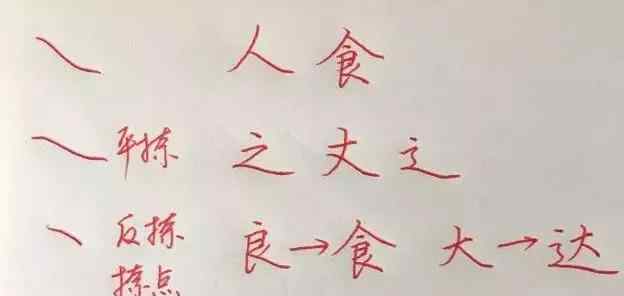 人 食
平捺 之 丈 辶
反捺 良→食 大→达
捺点